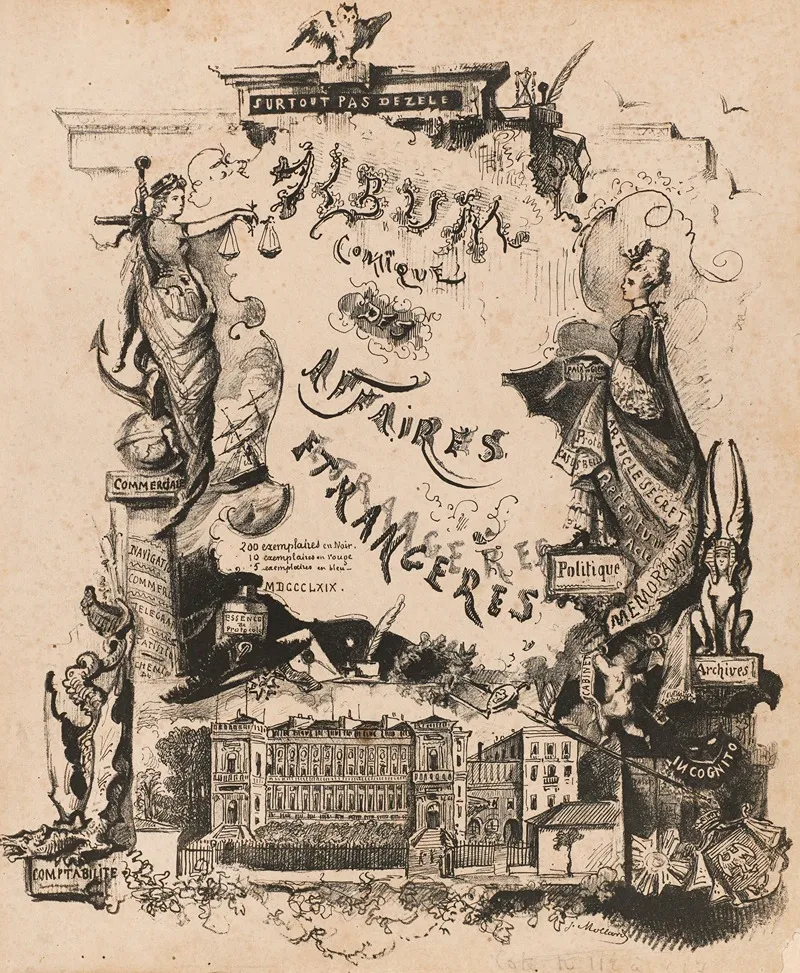 SURTOUT PAS DE ZELE
ALBUM
Comique
DES
AFFAIRES
ETRANGERES
200 exemplaires en Noir.
10 exemplaires en rouge
5 exemplaires en bleu
MDCCCLXIX.
COMMERCIALE
NAVIGATI
COMMER
TELEGRA
CHEMI
ESSENCE
de
Protocole
ARTICLE SECRET
MEMORANDUM
Politique
Archives
CABINET
INCOGNITO
COMPTABILITE
J. Mollard